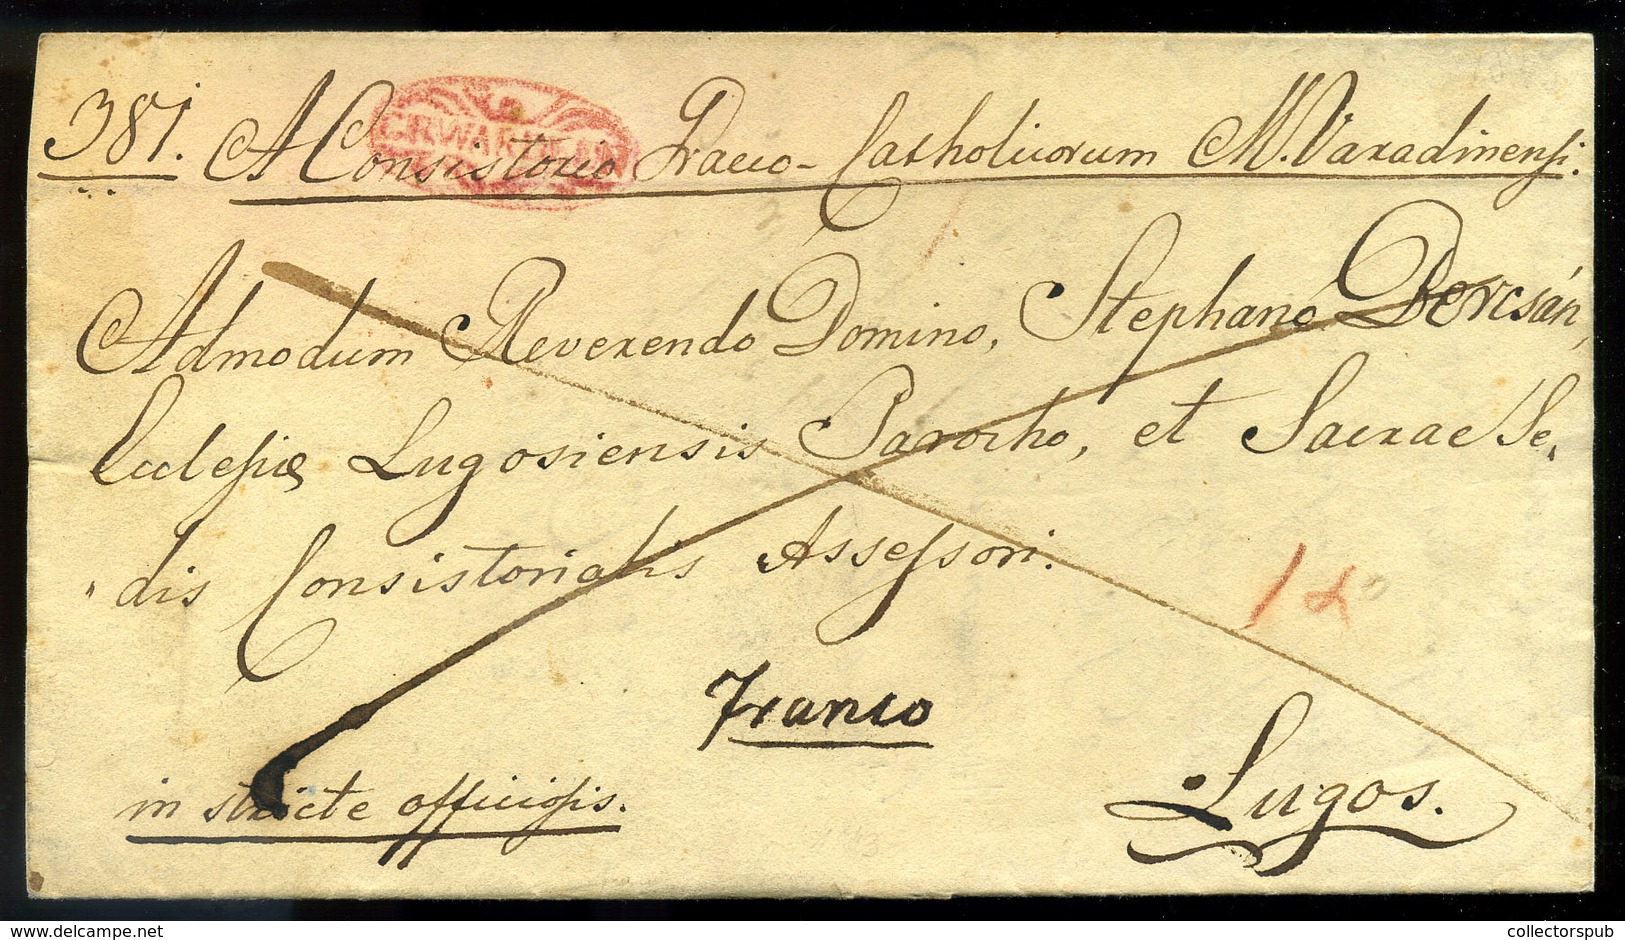 381. A Consistorio Graeco-Catholicorum M. Varadinensi.
GR.WARDEIN
Admodum Reverendo Domino, Stephano Bercsán,
Ecclesiae Lugosiensis Parocho, et Sacrae Se„
„dis Consistorialis Assessori.
Franco
in stricte officiosis. Lugos.
hu.delcampe.net
collectorspub